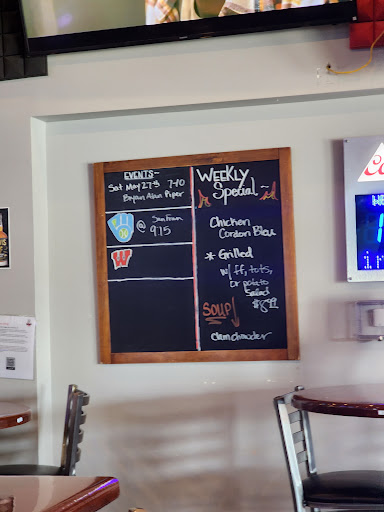 EVENTS~
Sat May 27th 7-10
Bryan Alan Piper
@ San Fran
9:15
W
WEEKLY
Special~
Chicken
Cordon Bleu
* Grilled
w/ ff, tots,
or potato
Salad
$8.99
SOUP
clam chowder